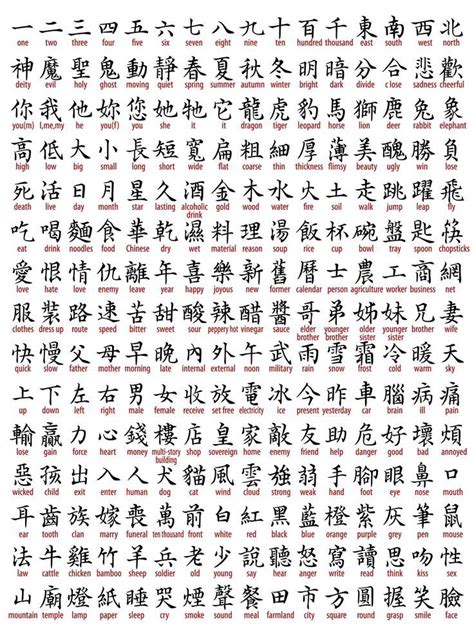 一 二 三 四 五 六 七 八 九 十 百 千 東 南 西 北
one two three four five six seven eight nine ten hundred thousand east south west north
神 魔 聖 鬼 動 靜 春 夏 秋 冬 明 暗 分 合 悲 歡
deity evil holy ghost moving quiet spring summer autumn winter bright dark divide close sadness cheerful
你 我 他 妳 您 她 牠 它 龍 虎 豹 馬 獅 鹿 兔 象
you(m) I,me,my he you(f) you she it it dragon tiger leopard horse lion deer rabbit elephant
高 低 大 小 長 短 寬 扁 粗 細 厚 薄 美 醜 勝 負
high low big small long short wide flat coarse thin thickness flimsy beauty ugly win lose
死 活 日 月 星 久 酒 金 木 水 火 土 走 跳 躍 飛
death live day month star long lasting alcoholic drink gold wood water fire soil walk jump leap fly
吃 喝 麵 食 華 乾 濕 料 理 湯 飯 杯 碗 盤 匙 筷
eat drink noodles food Chinese dry wet material reason soup rice cup bowl tray spoon chopsticks
愛 恨 情 仇 離 年 喜 樂 新 舊 曆 士 農 工 商 網
love hate love enemy leave year happy joyous new former calendar person agriculture worker business net
服 裝 路 速 苦 甜 酸 辣 醋 醬 哥 弟 姊 妹 兄 妻
clothes dress up route speed bitter sweet sour peppery hot vinegar sauce elder brother younger brother older sister younger sister brother wife
快 慢 父 母 早 晚 內 外 午 軍 雨 雪 霜 冷 暖 天
quick slow father mother morning late internal external noon military rain snow frost cold warm sky
上 下 左 右 男 女 收 放 電 冰 今 昨 車 腦 病 痛
up down left right male female receive set free electricity ice present yesterday car brain ill pain
輸 贏 力 心 錢 樓 店 皇 家 敵 友 助 危 好 壞 煩
lose gain force heart money multi-story building shop sovereign home enemy friend help danger good bad annoyed
惡 孩 出 入 人 犬 貓 風 雲 強 弱 手 腳 眼 鼻 口
wicked child exit enter human dog cat wind cloud strong weak hand foot eye nose mouth
耳 齒 族 嫁 喪 萬 前 白 紅 黑 藍 橙 紫 灰 筆 鼠
ear tooth clan marry funeral ten thousand front white red black blue orange purple grey pen mouse
法 牛 雞 竹 羊 兵 老 少 說 聽 怒 寫 讀 思 吻 性
law cattle chicken bamboo sheep soldier old young say listen angry write read think kiss sex
山 廟 燈 紙 睡 哭 煙 聲 餐 田 城 市 方 圓 握 笑 臉
mountain temple lamp paper sleep cry smoke sound meal farmland city square round grasp smile face